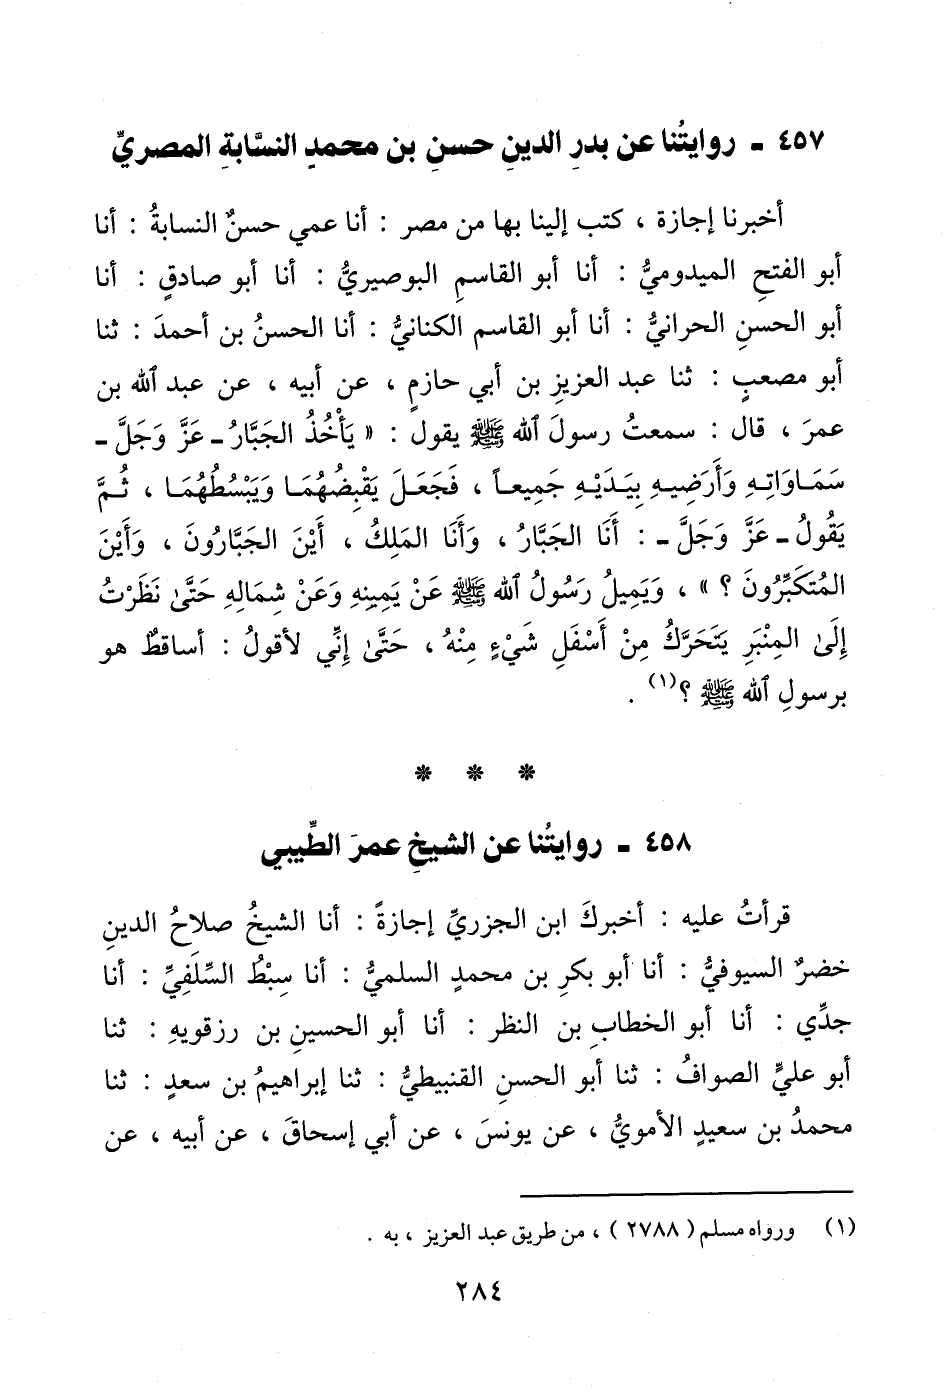 ٤٥٧ ـ روايتُنا عن بدرِ الدينِ حسنِ بن محمدٍ النسَّابةِ المصريِّ
أخبرنا إجازة ، كتب إلينا بها من مصر : أنا عمي حسنٌ النسابةُ : أنا
أبو الفتحِ الميدوميُّ : أنا أبو القاسمِ البوصيريُّ : أنا أبو صادقٍ : أنا
أبو الحسنِ الحرانيُّ : أنا أبو القاسم الكنانيُّ : أنا الحسنُ بن أحمدَ : ثنا
أبو مصعبٍ : ثنا عبد العزيزِ بن أبي حازمٍ ، عن أبيه ، عن عبد الله بن
عمرَ ، قال : سمعتُ رسولَ الله ﷺ يقول : « يَأْخُذُ الجَبَّارُ ـ عَزَّ وَجَلَّ ـ
سَمَاوَاتِهِ وَأَرَضِيهِ بِيَدَيْهِ جَمِيعاً ، فَجَعَلَ يَقْبِضُهُمَا وَيَبْسُطُهُمَا ، ثُمَّ
يَقُولُ ـ عَزَّ وَجَلَّ ـ : أَنَا الجَبَّارُ ، وَأَنَا المَلِكُ ، أَيْنَ الجَبَّارُونَ ، وَأَيْنَ
المُتكَبِّرُونَ ؟ » ، وَيَمِيلُ رَسُولُ الله ﷺ عَنْ يَمِينِهِ وَعَنْ شِمَالِهِ حَتَّىٰ نَظَرْتُ
إِلَىٰ المِنْبَرِ يَتَحَرَّكُ مِنْ أَسْفَلِ شَيْءٍ مِنْهُ ، حَتَّىٰ إِنِّي لأقولُ : أساقطٌ هو
برسولِ الله ﷺ ؟(١) .
* * *
٤٥٨ ـ روايتُنا عن الشيخِ عمرَ الطِّيبي
قرأتُ عليه : أخبركَ ابن الجزريِّ إجازةً : أنا الشيخُ صلاحُ الدينِ
خضرٌ السيوفيُّ : أنا أبو بكرِ بن محمدٍ السلميُّ : أنا سِبْطُ السِّلَفِيِّ : أنا
جدِّي : أنا أبو الخطابِ بن النظر : أنا أبو الحسينِ بن رزقويهِ : ثنا
أبو عليٍّ الصوافُ : ثنا أبو الحسنِ القنبيطيُّ : ثنا إبراهيمُ بن سعدٍ : ثنا
محمدُ بن سعيدٍ الأمويُّ ، عن يونسَ ، عن أبي إسحاقَ ، عن أبيه ، عن
(١) ورواه مسلم ( ٢٧٨٨ ) ، من طريق عبد العزيز ، به .
٢٨٤